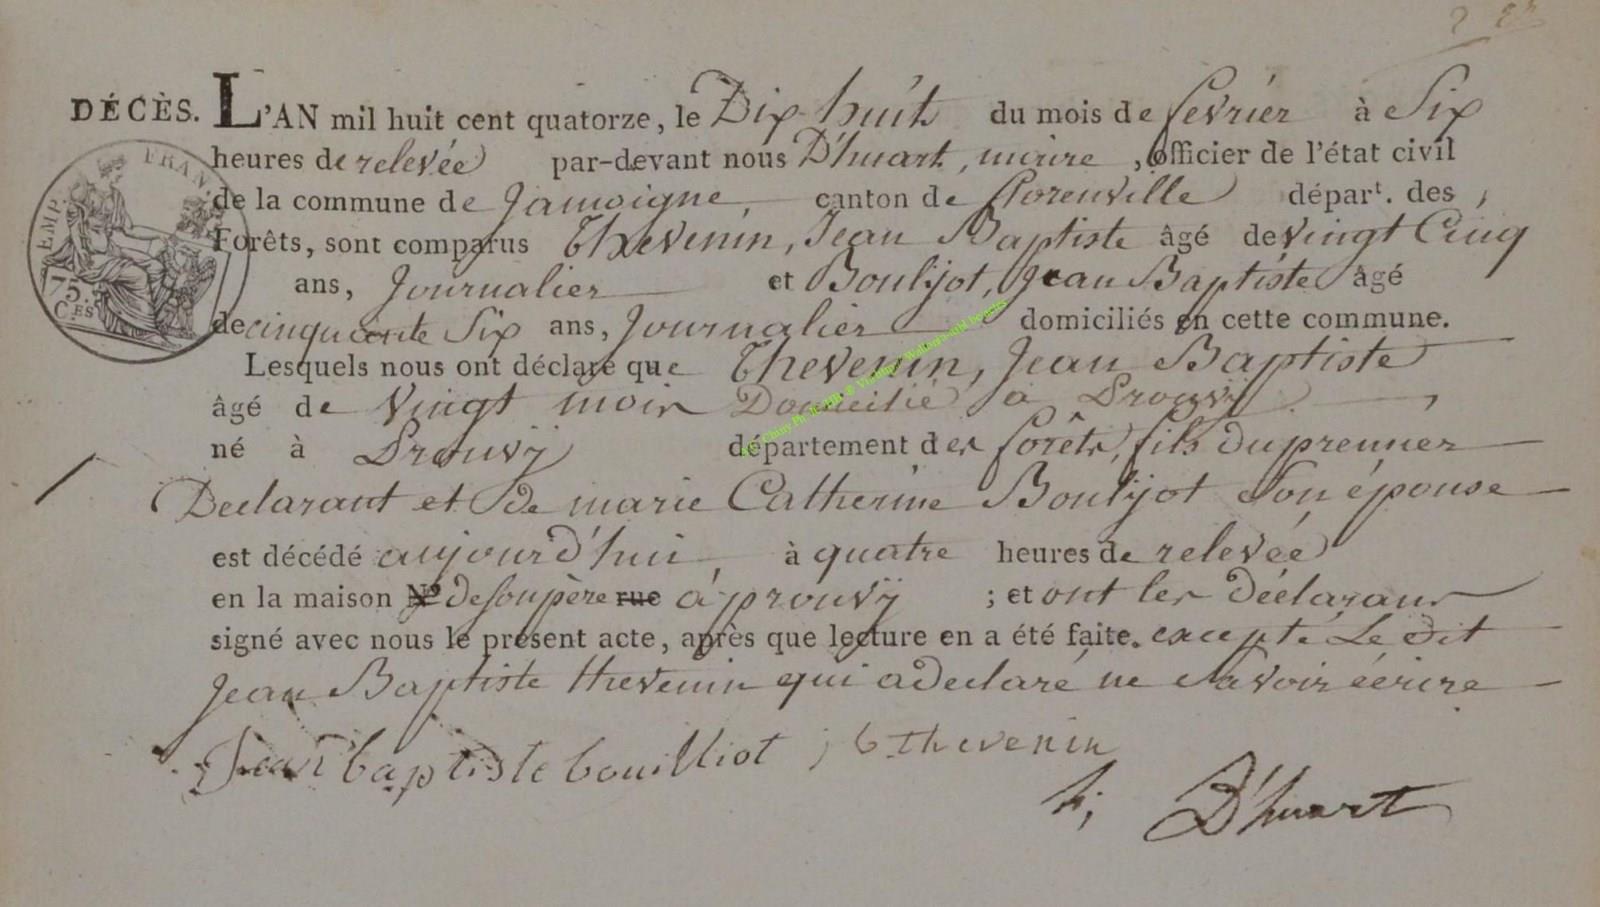 DÉCÈS. L'AN mil huit cent quatorze, le Dix huit du mois de fevrier à Six
heures de relevée par-devant nous D'huart, maire, officier de l'état civil
de la commune de Jamoigne, canton de florenville départ. des
Forêts, sont comparus Thevenin, Jean Baptiste âgé de vingt Cinq
ans, Journalier et Boulijot, Jean Baptiste âgé
de cinquante Six ans, Journalier domiciliés en cette commune.
Lesquels nous ont déclaré que Thevenin, Jean Baptiste
âgé de Vingt mois Domicilié a Prouvÿ
né à Prouvÿ département des forêts, fils du premier
Declarant et de marie Catherine Boulijot Son épouse
est décédé aujourd'hui, à quatre heures de relevée
en la maison N° de son père rue à prouvÿ ; et ont les déclarans
signé avec nous le présent acte, après que lecture en a été faite. excepté Le dit
Jean Baptiste thevenin qui a declaré ne Savoir écrire
Jean baptiste bouilliot j b thevenin
D'huart
EMP. FRAN.
75.
C.ES